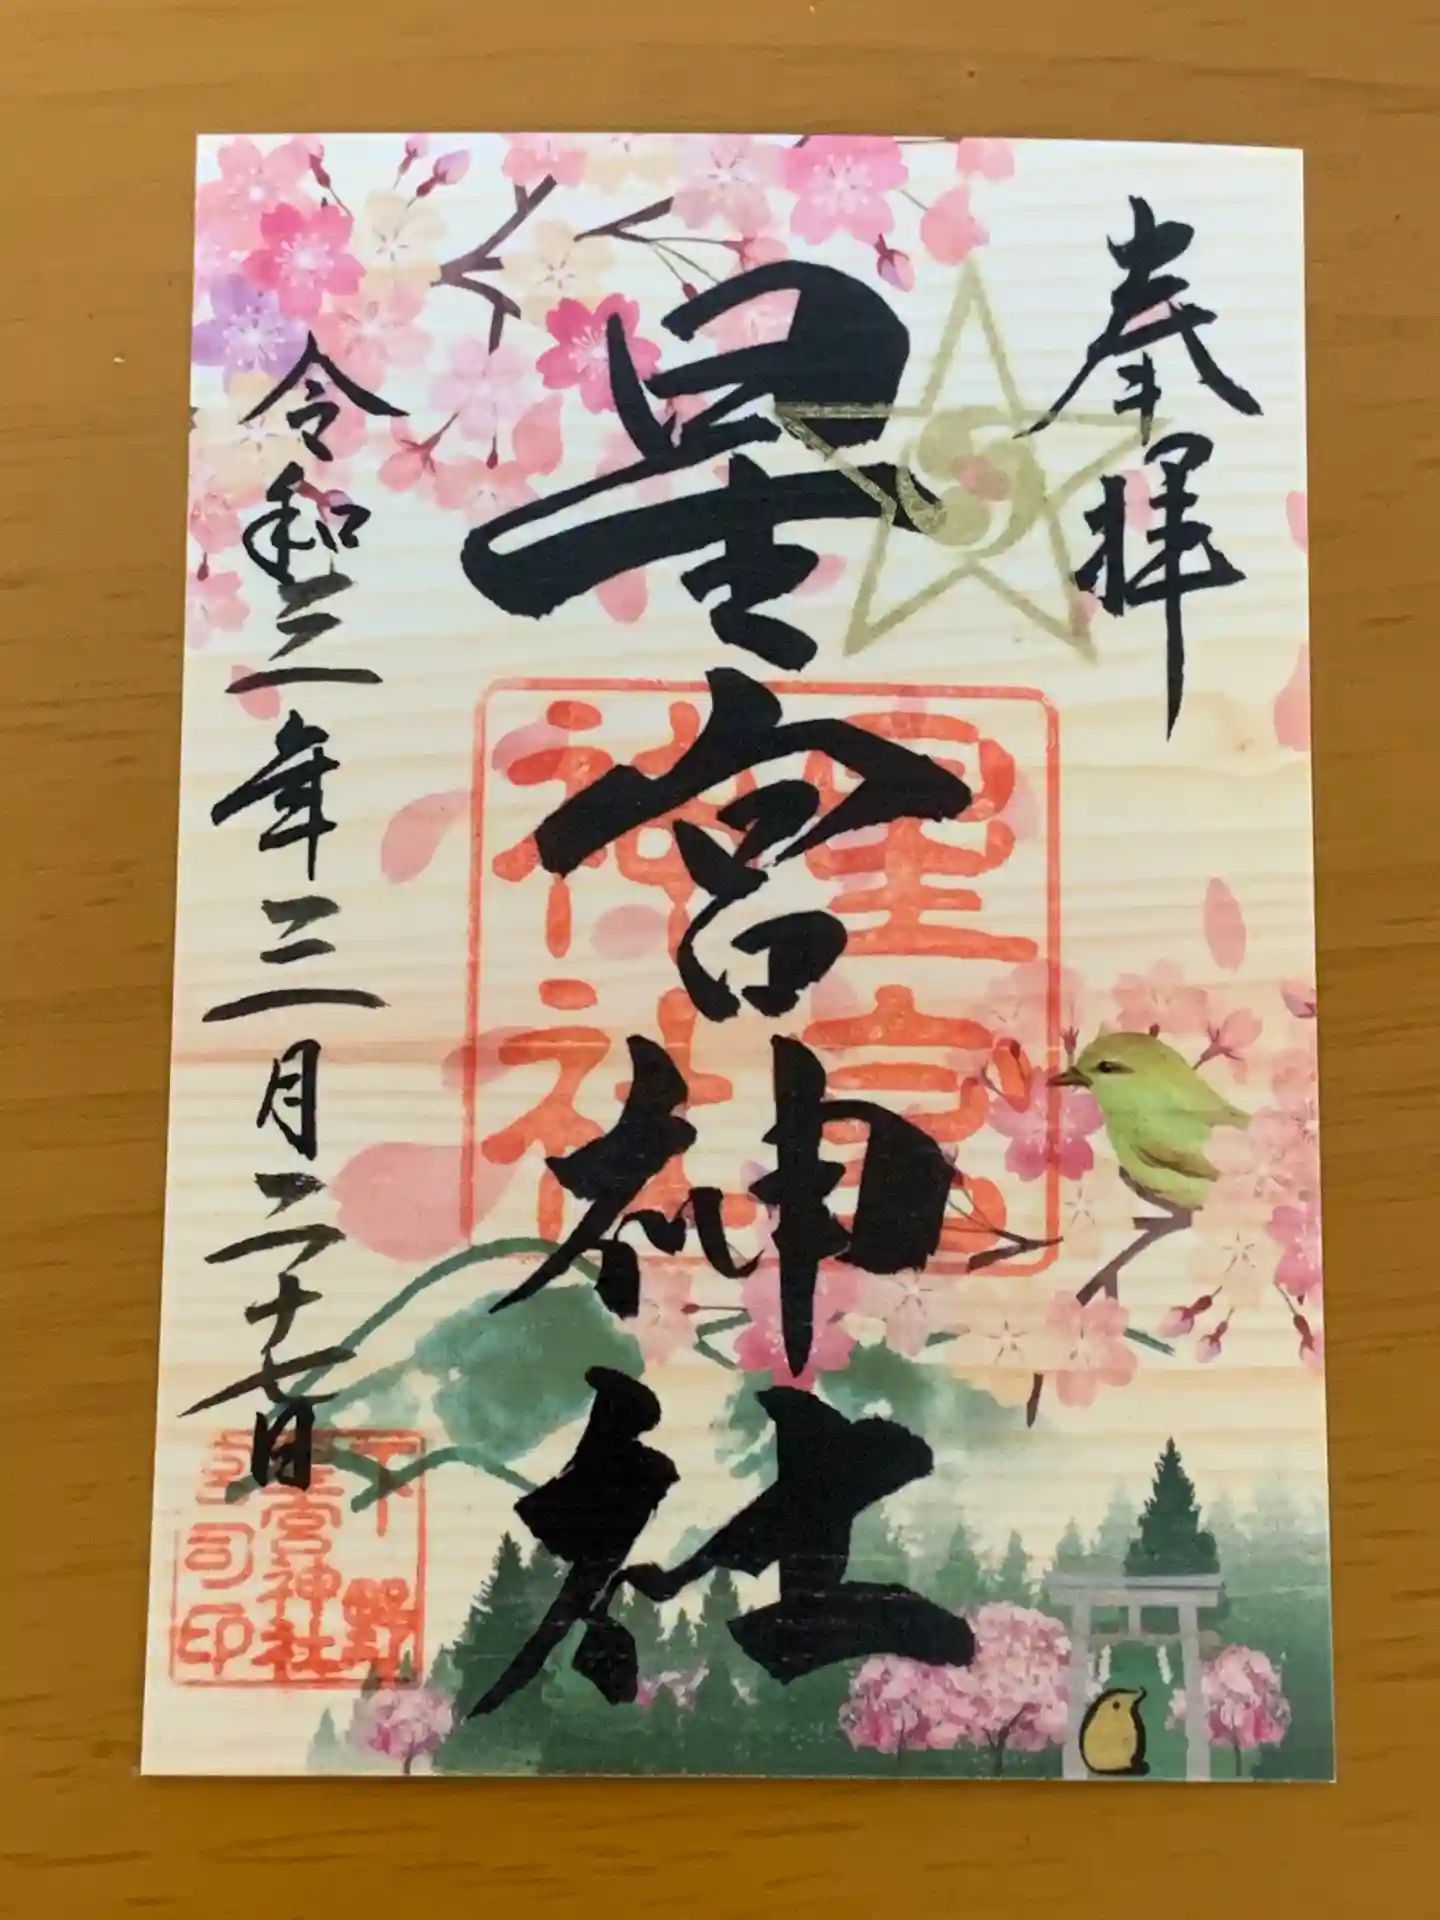 奉拝
星宮神社
令和三年三月二十七日
星宮
神社
下野
星宮神社
宮司印